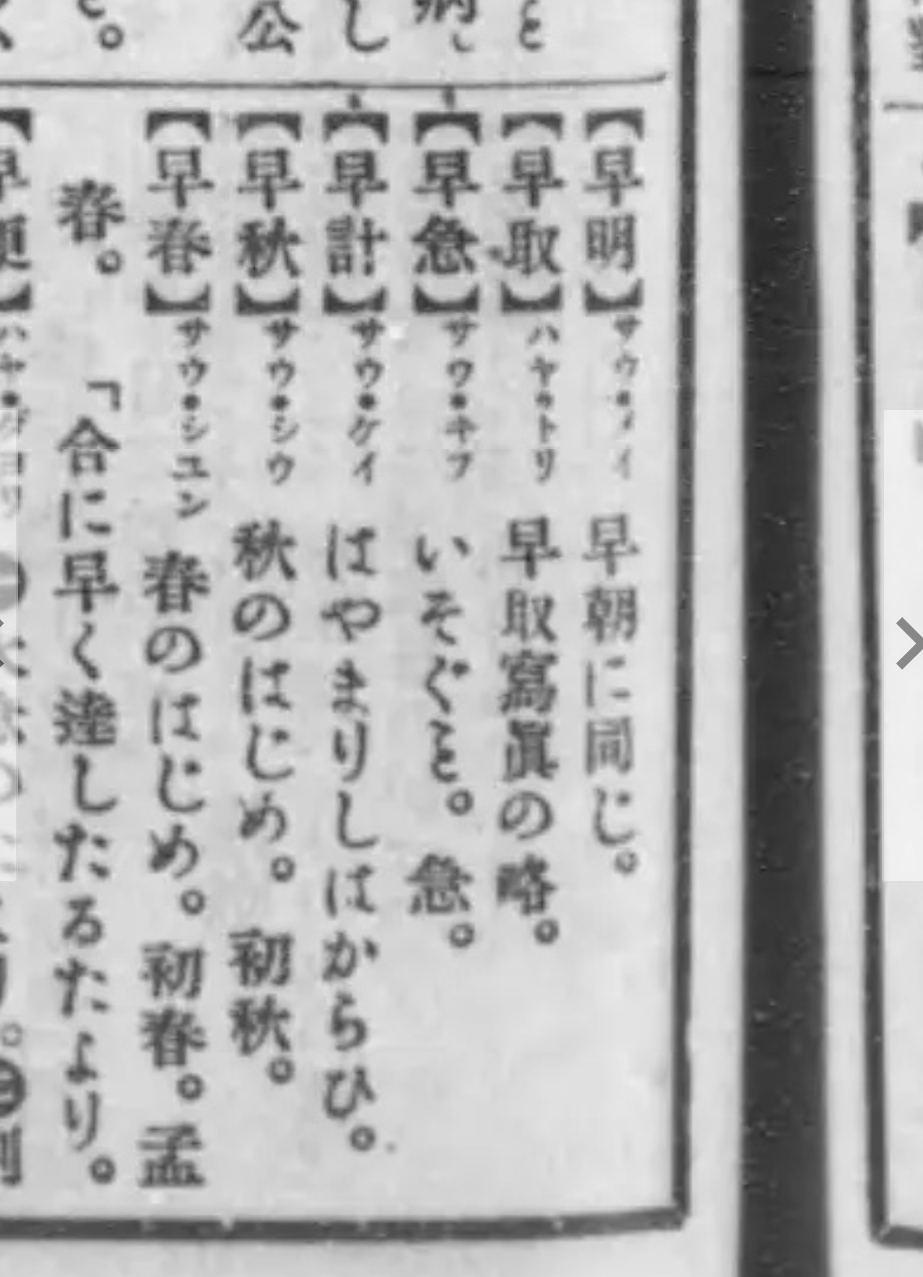 と
し
公
【早明】サウ・メイ 早朝に同じ。
【早取】ハヤ・トリ 早取寫眞の略。
【早急】サウ・キフ いそぐこと。急。
【早計】サウ・ケイ はやまりしはからひ。
【早秋】サウ・シウ 秋のはじめ。初秋。
【早春】サウ・シユン 春のはじめ。初春。孟
春。 「合に早く達したるたより。